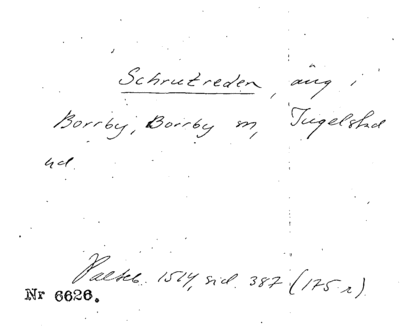 Schrutreden, äng i
Borrby, Borrby sn, Ingelstad
hd.
Palteb. 1514, sid. 387 (175 r)
Nr 6626.